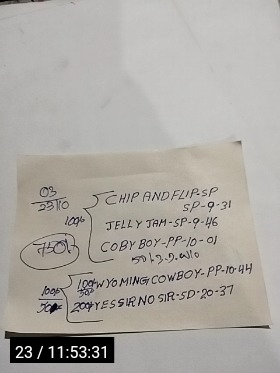 03
23/10
CHIP AND FLIP-SP
SP-9-31
100/-
JELLY JAM-SP-9-46
750/-
COBY BOY-PP-10-01
100/-
50/-
100/- WYOMING COWBOY-PP-10-44
50/-
200/- YES SIR NO SIR-SD-20-37
23 / 11:53:31